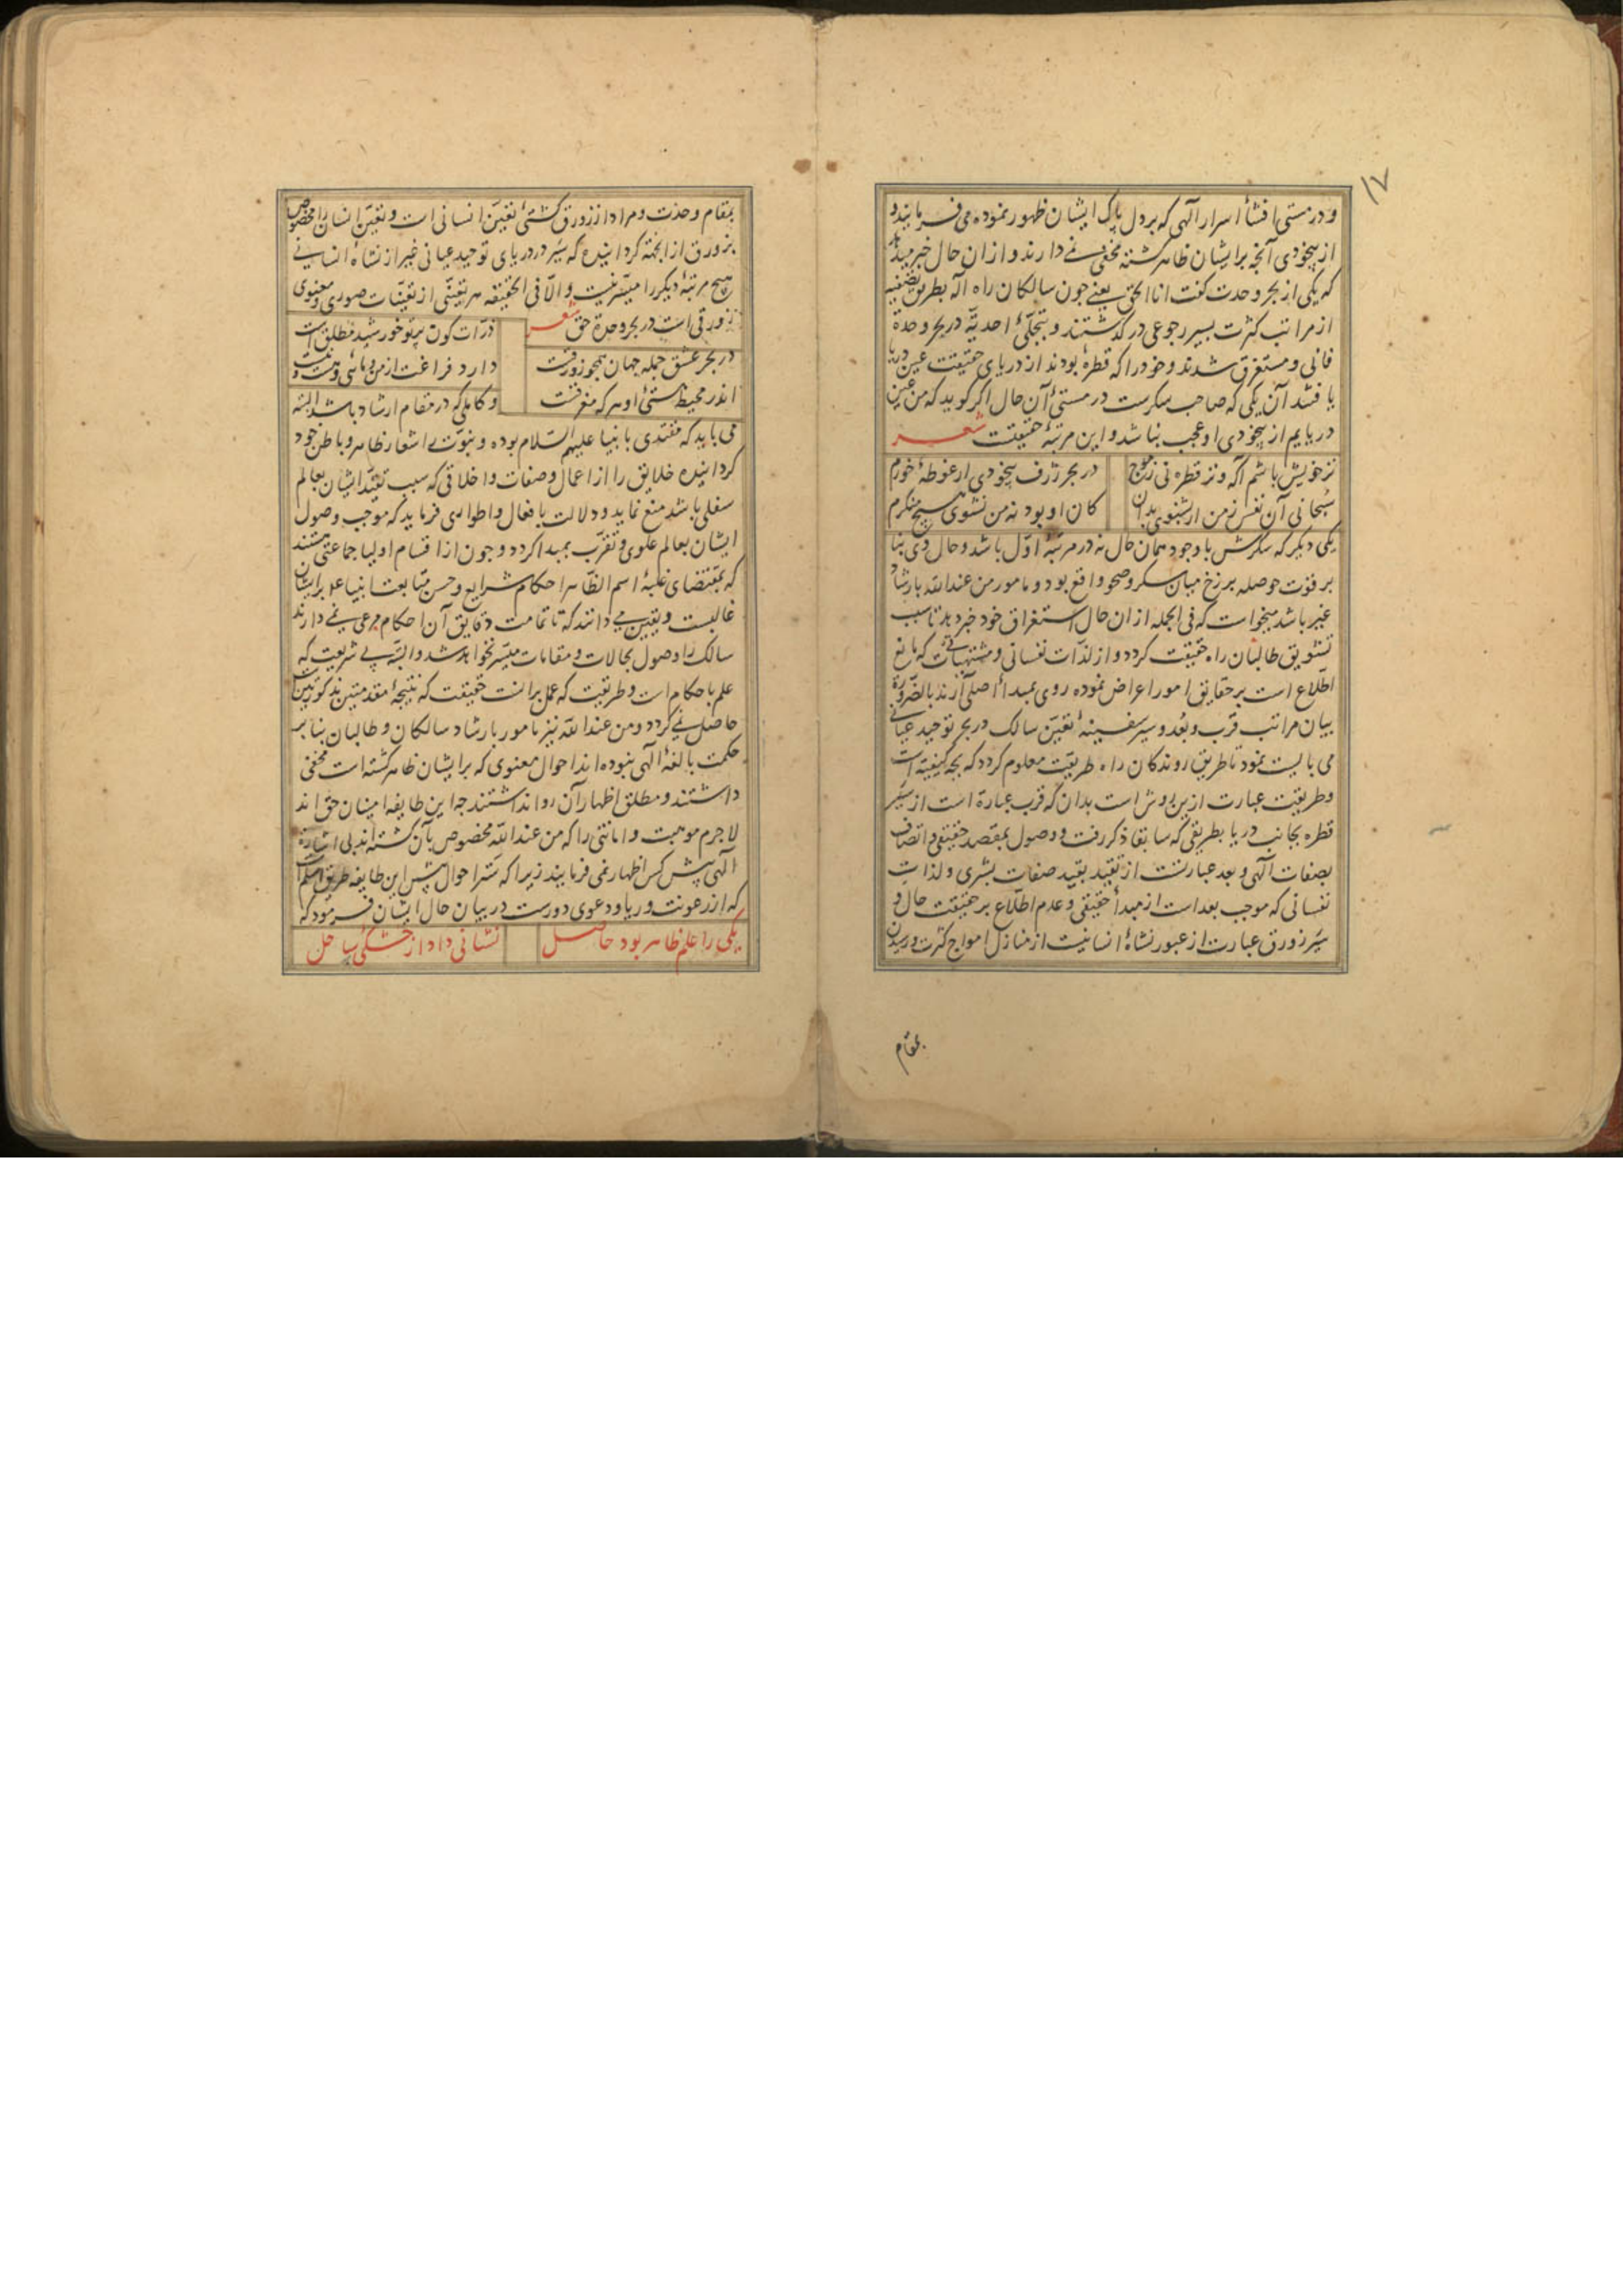 ١٧
و در مستی افشأ اسرار آلهی که بر دل پاک ایشان ظهور نموده می فرمایند و
از بیخودی آنچه بر ایشان ظاهر کشته مخفی نمے دارند و از ان حال خبر میدهند
که یکی از بحر وحدت کفت انا الحق یعنے چون سالکان راه اله بطریق تصفیه
از مراتب کثرت بسیر رجوعی در کذشتند و بتجلّئ احدیّه در بحر وحدة
فانی و مستغرق شدند و خود را که قطرهٔ بودند از دریای حقیقت عین دریا
یافتند آن یکی که صاحب سکرست در مستئ آن حال اکر کوید که من عین
دریایم از بیخودی او عجب نباشد و این مرتبهٔ حقیقت شعر
نز خویش باشم آکه و نز قطره نی ز موج در بحر ژرف بیخودی ار غوطهٔ خورم
سُبحانی آن نفس ز من ار بشنوی بدان کان او بود نه من نشوی هیچ منکرم
یکی دیکر که سکرش با وجود همان حال نه در مرتبهٔ اوّل باشد و حال وی بنا
بر قوّت حوصله برزخ میان سکر و صحو واقع بود و مامور من عند الله بارشاد
غیر باشد میخواست که فی الجمله از ان حال استغراق خود خبر دهد تا سبب
تشویق طالبان راه حقیقت کردد و از لذّات نفسانی و مشتهیاتے که مانع
اطّلاع است بر حقایق امور اعراض نموده روی بمبدأ اصلی آرند بالضّرورة
بیان مراتب قرب و بُعد و سیر سفینهٔ تعیّن سالک در بحر توحید عیانے
می بایست نمود تا طریق روندکان راه طریقت معلوم کردد که بچه کیفیّة است
و طریقت عبارت ازین روش است بدان که قرب عبارة است از سَیر
قطره بجانب دریا بطریقی که سابقا ذکر رفت و وصول بمقصد حقیقی و اتصاف
بصفات آلهی و بعد عبارتست از تقیّد بقید صفات بشری و لذات
نفسانی که موجب بعد است از مبدأ حقیقی و عدم اطّلاع بر حقیقت حال و
سَیر زورق عبارت از عبور نشاهٔ انسانیت از منازل امواج کثرت و رسیدن
بمقام
بمقام وحدت و مراد از زورق کشتئ تعیّن انسانی است و تعیّن انسان را مخصوص
بزورق از انجهة کردانیده که سَیر در دریای توحید عیانی غیر از نشاهٔ انسانے
هیچ مرتبهٔ دیکر را میسّر نیست و الّا فی الحقیقه هر تعیّنی از تعیّنات صوری و معنوی
زورقی است در بحر وحدة حق شعر ذرّات کون پرتو خورشید مطلق است
در بحر عشق جمله جهان همچو زورقست دارد فراغت از من و مائی و هست و نیست
اندر محیط هستئ او هر که مغرقست و کاملی که در مقام ارشاد باشد البته
می باید که مقتدی بانبیا علیهم السّلام بوده و نبوّت را شعار ظاهر و باطن خود
کردانیده خلایق را از اعمال و صفات و اخلاقی که سبب تقیّد ایشان بعالم
سفلی باشد منع نماید و دلالت بافعال و اطواری فرماید که موجب وصول
ایشان بعالم علوی و تقرّب بمبدا کردد و چون از اقسام اولیا جماعتی هستند
که بمقتضای غلبهٔ اسم الظّاهر احکام شرایع و حسن متابعت انبیا علم بر ایشان
غالبست و یقین مے دانند که تا تمامت دقایق آن احکام مرعی نمے دارند
سالک را وصول بحالات و مقامات میسّر نخواهد شد و البتّه بے شریعت که
علم باحکام است و طریقت که عمل برانست حقیقت که نتیجهٔ مقدمتین مذکورتین است
حاصل نمے کردد و من عند الله نیز مامور بارشاد سالکان و طالبان بنا بر
حکمت بالغهٔ الهی نبوده اند احوال معنوی که بر ایشان ظاهر کشته است مخفی
داشتند و مطلق اظهار آن روا نداشتند چه این طایفه امینان حق اند
لاجرم موهبت و امانتی را که من عند الله مخصوص بآن کشته اند بی اشارة
الهی پیش کس اظهار نمی فرمایند زیرا که سَتر احوال پیش این طایفه طریق اسلم است
که از رعونت و ریا و دعوی دورست در بیان حال ایشان فرمود که
یکی را علم ظاهر بود حاصل نشانی داد از خشکی ساحل